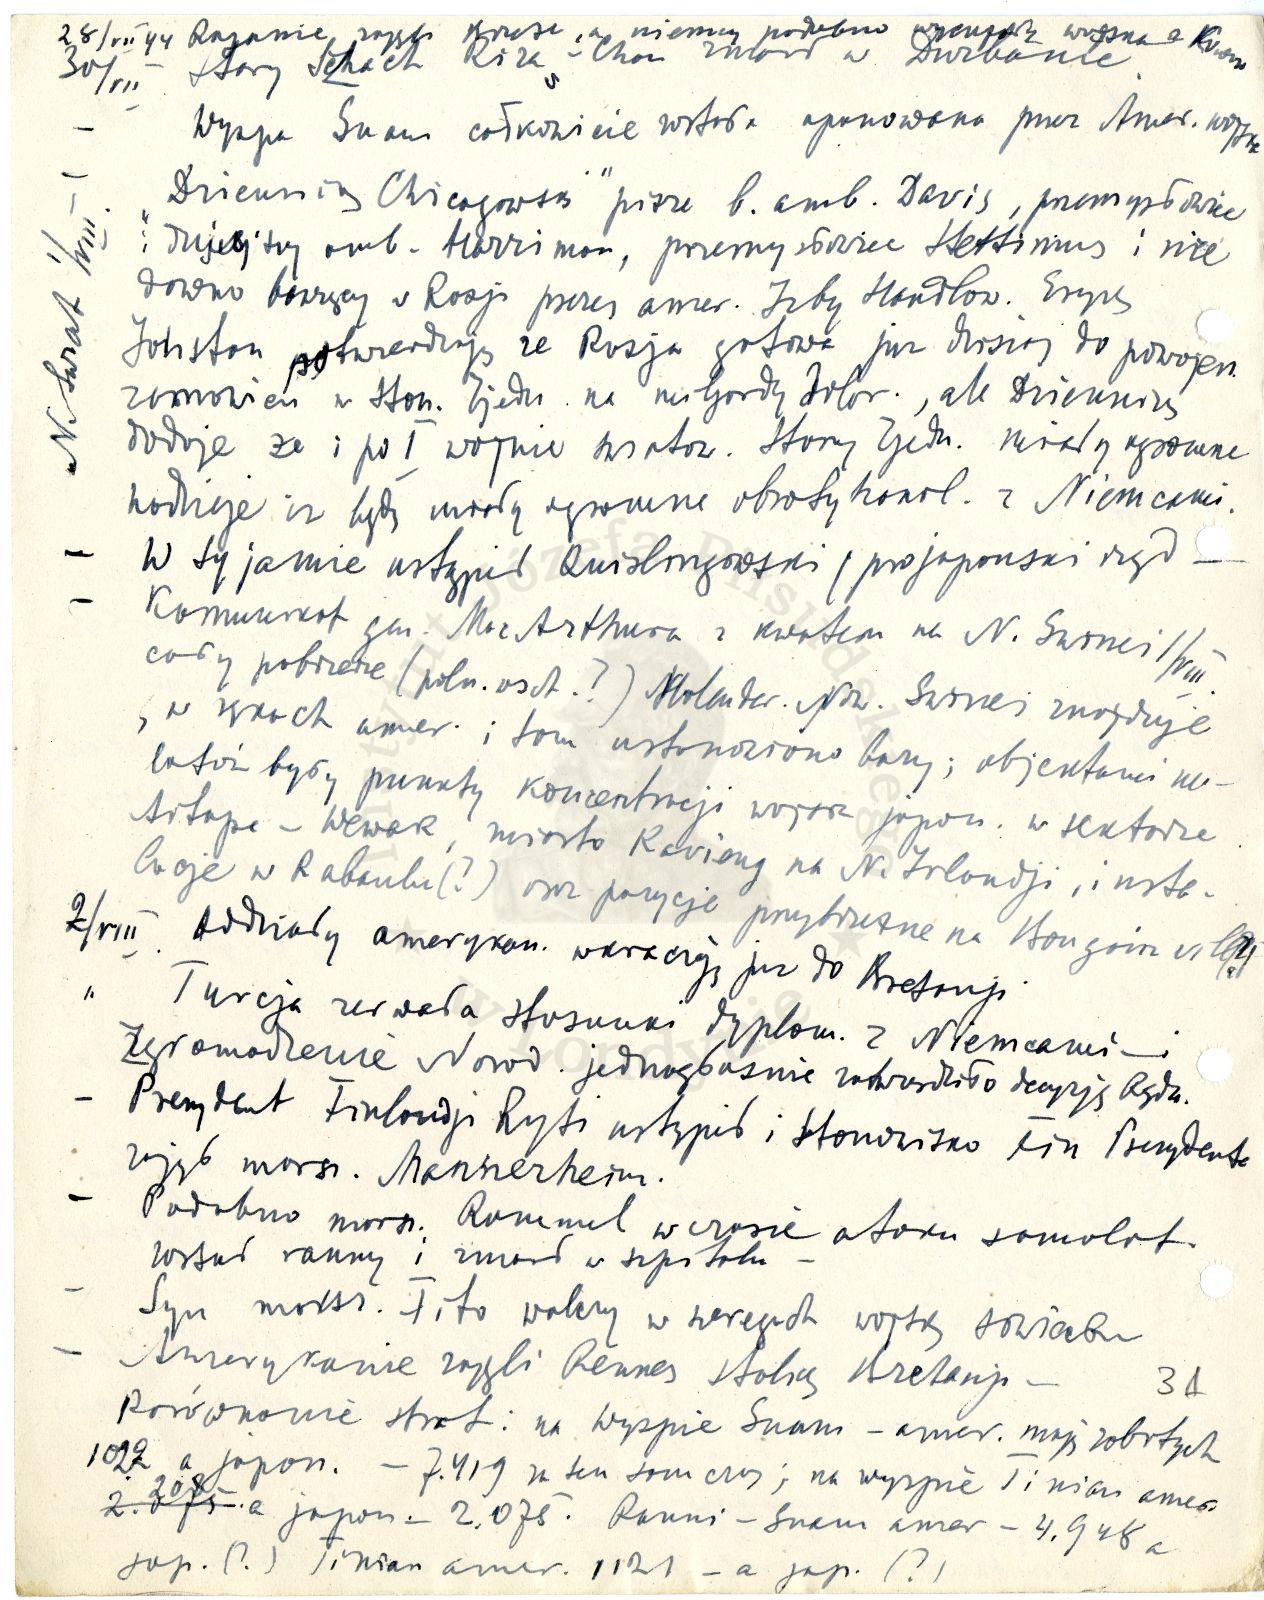 28/VII 44 Rosjanie zajęli Brześć, a niemcy podobno wycofują wojska z Kowna
30/VII Stary Schach Riza-Chan zmarł w Durbanie.
– Wyspa Guam całkowicie została opanowana przez Amer. wojska
N. Świat 1/VIII.
– „Dziennik Chicagowski" pisze b. amb. Davis, przemysłowiec
i dzisiejszy amb. Harriman, przemysłowiec Stettinius i nie
dawno bawiący w Rosji prezes amer. Izby Handlow. Eryk
Johston potwierdzają że Rosja gotowa już dzisiaj do powojen.
zamówień w Stan. Zjedn. na miljardy dolar., ale Dziennik
dodaje że i po I wojnie światow. Stany Zjedn. miały ogromne
nadzieje iż będą miały ogromne obroty handl. z Niemcami.
– W Syjamie ustąpił Quislingowski / projapoński rząd –
– Komunikat gen. Mac Arthura z kwater na N. Gwinei 1/VIII.
cały pobrzeże (półn. wsch.?) Holender. Now. Gwinei znajduje
, w rękach amer. i tam ustanowiono bazy; objektami na-
lotów były punkty koncentracji wojsk japon. w sektorze
Aitape – Wewak, miasto Kavieng na N. Irlandji, insta-
lacje w Rabaulu (?) oraz pozycje przybrzeżne na Bougainville (?)
2/VIII. Oddziały amerykan. wkraczają już do Bretanji.
" Turcja zerwała stosunki dyplom. z Niemcami – i
Zgromadzenie Narod. jednogłośnie zatwierdziło decyzję Rządu.
– Prezydent Finlandji Ryti ustąpił i stanowisko Fin Prezydenta
zajął marsz. Mannerheim.
– Podobno marsz. Rommel w czasie ataku samolot.
został ranny i zmarł w szpitalu –
– Syn marsz. Tito walczy w szeregach wojsk sowieckich
– Amerykanie zajęli Rennes stolicę Bretanji –
3A
Porównanie strat: na wyspie Guam – amer. mają zabitych
1022 a japon. – 7.419 za ten sam czas; na wyspie Tinian amer.
208
2.075. a japon – 2.075. Ranni – Guam amer – 4.948 a
jap. (?) Tinian amer. 1121 – a jap. (?)
Instytut Józefa Piłsudskiego w Londynie